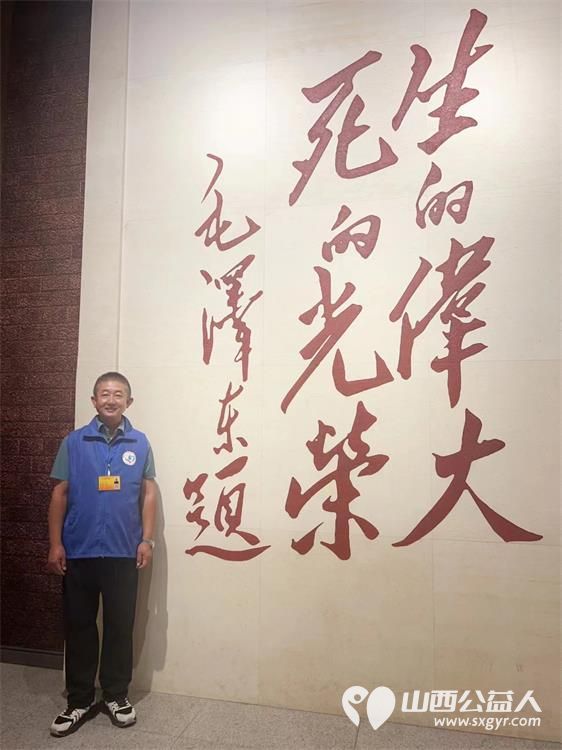 生的偉大
死的光榮
毛澤东題
山西公益人
www.sxgyr.com